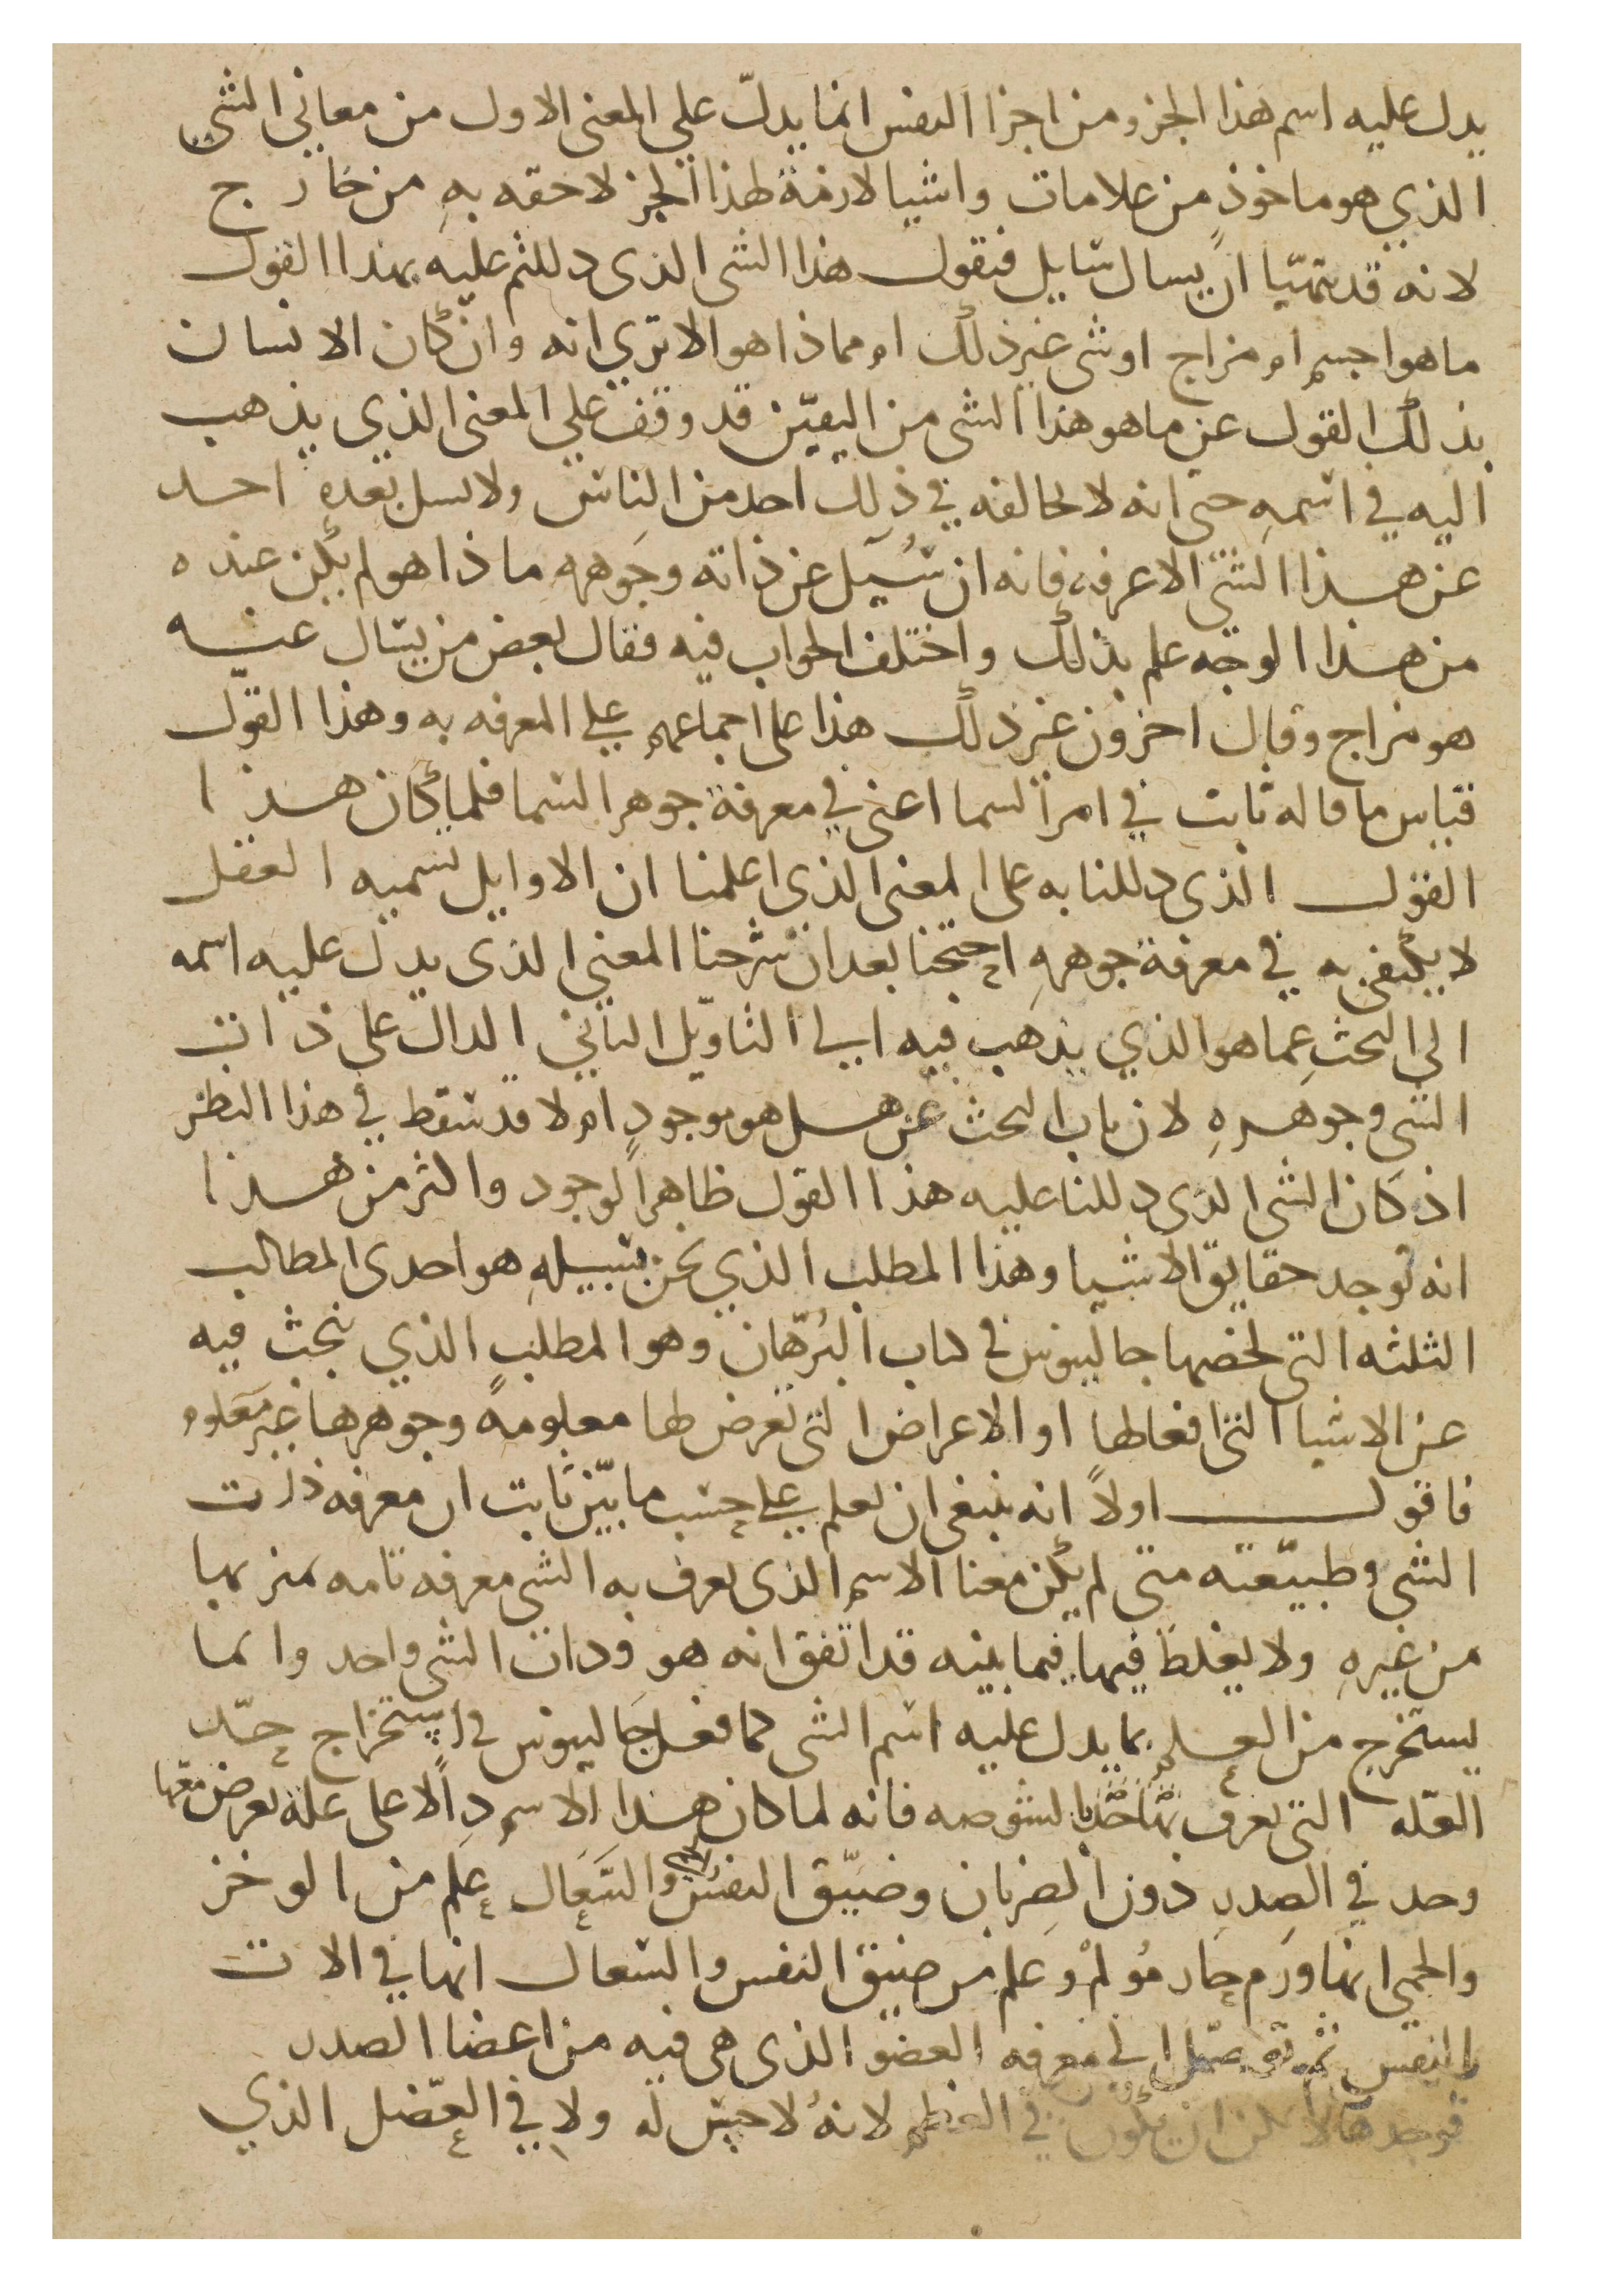 يدل عليه اسم هذا الجزو من اجزا النفس انما يدلّ علي المعنى الاول من معاني الشى
الذي هو ماخوذ من علامات واشيا لازمة لهذا الجز لاحقه بهِ من خارج
لانه قد يتهيّا ان يسال سايل فيقول هذا الشى الذى دللتم عليه بهذا القول
ما هو اجسم ام مزاج او شى غير ذلك ام مماذا هو الا تري انه وان كان الانسان
بذلك القول عن ما هو هذا الشى من اليقين قد وقف علي المعنى الذي يذهب
اليه في اسمهِ حتى انه لا يخالفه في ذلك احد من الناس ولا يسل بعده احد
عن هذا الشى الا عرفه فانه ان سُيل عن ذاته وجوهرهِ ماذا هو لم يكن عنده
من هذا الوجه علم بذلك واختلف الجواب فيه فقال بعض من يسال عنه
هو مزاج وقال اخرون غير ذلك هذا على اجماعهم علي المعرفه به وهذا القول
قياس ما قاله ثابت في امر السما اعنى في معرفة جوهر السما فلما كان هذا
القول الذى دللنا به على المعنى الذي اعلمنا ان الاوايل تسميه العقل
لا يكتفى به في معرفة جوهرهِ احتجنا بعد ان شرحنا المعنى الذى يدل عليه اسمه
الى البحث عما هو الذي يذهب فيه الي التاويل الثاني الدال على ذات
الشى وجوهرهِ لان باب البحث عن هل هو موجود ام لا قد سقط في هذا النظر
اذ كان الشى الذى دللنا عليه هذا القول ظاهر الوجود واكثر من هذا
انه توجد حقايق الاشيا وهذا المطلب الذي نحن بسبيلهِ هو احدى المطالب
الثلثه التى لخصها جالينوس في كتاب البُرهان وهو المطلب الذي نبحث فيه
عن الاشيا التى افعالها او الاعراض التى تعرض لها معلومةً وجوهرها غير معلوم
فاقول اولاً انه ينبغى ان تعلم علي حسب ما بيّن ثابت ان معرفه ذات
الشى وطبيعته متى لم يكن معنا الاسم الذى يعرف به الشى معرفه تامه نميز بها
من غيرهِ ولا يغلط فيها فيما بينه قد اتفق انه هو وذات الشى واحد وانما
يستخرج من العلم بما يدل عليه اسم الشى كما فعل جالينوس في استخراج حدّ
العله التى تعرف بالشوصه فانه لما كان هذا الاسم دالا على علة يعرض معها
وخز في الصدر دون الضربان وضيق النفس والسعال علم من الوخز
والحمى انها ورم حار مُولم وعلم من ضيق النفس والسعال انها في الات
النفس ثم توصّل الي معرفه العضو الذى هى فيه من اعضا الصدر
فوجدها لا يمكن ان تكون في العظم لانهُ لا حس له ولا في العضل الذي